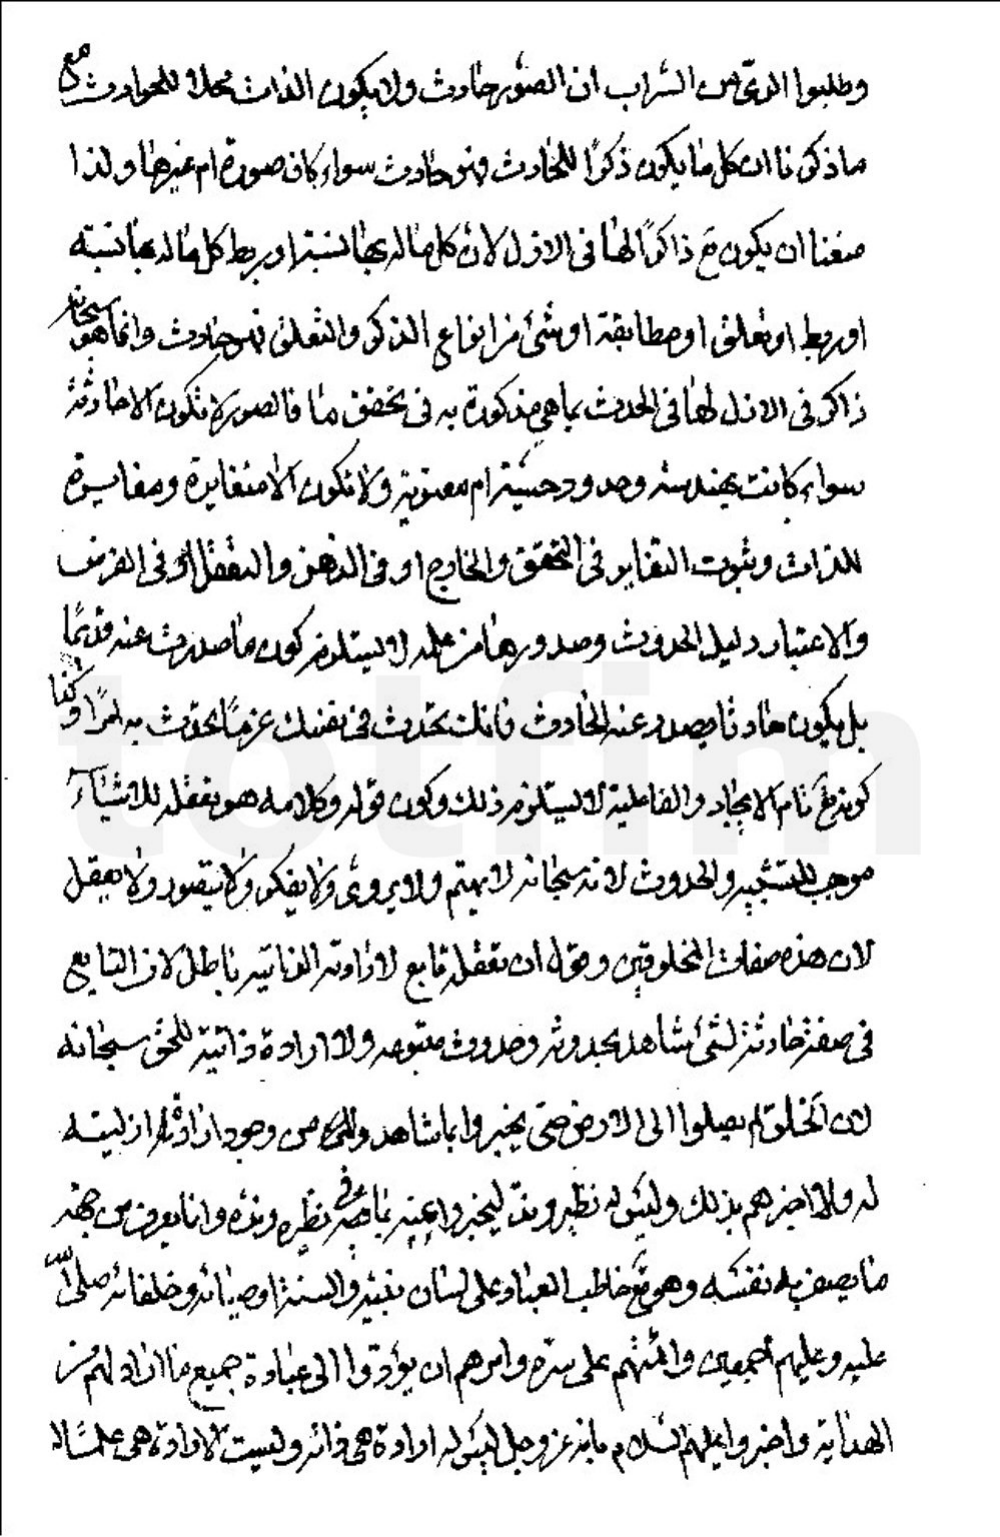 وطلبوا الريّ من السّراب ان الصّور حادث ولا يكون الذات محلا للحوادث مع
ما ذكرنا ان كل ما يكون ذكرًا للحادث فهو حادث سواء كان صورة ام غيرها ولذا
منعنا ان يكون تع ذاكرًا لها فى الازل لان كل ما له بها نسبة او ربط كل ما له بها نسبته
او ربط او تعلق او مطابقة او شئ من انواع الذكر والتعلق فهو حادث وانما هو سبحانه
ذاكر فى الازل لها فى الحدث بما هى مذكورة به فى تحقق ما فالصور لا تكون الا حادثة
سواء كانت بهندسة وحدود حسّية ام معنوية ولا تكون الا متغايرة ومغايرة
للذات وثبوت التغاير فى التحقق والخارج او فى الذهن والتعقل او فى الفرض
والاعتبار دليل الحدوث وصدورها من علمه لا يستلزم كون ما صدرت عنه قديمًا
بل يكون حادثا يصدر عنه الحادث فانك تحدث فى نفسك عزمًا تحدث به امرًا وكذا
كونه تع تام الايجاد والفاعلية لا يستلزم ذلك وكون قوله وكلامه هو تعقله للاشياء
موجب للتشبيه والحدوث لانه سبحانه لا يهتم ولا يروى ولا يفكر ولا يتصور ولا يعقل
لان هذه صفات المخلوقين وقوله ان تعقله تابع لارادته الذاتية باطل لان التابع
فى صفة حادثة لشئ شاهد بحدوثه وحدوث متبوعه ولا ارادة ذاتية للحق سبحانه
لان الخلق لم يصلوا الى الازل حتى يخبروا بما شاهدوا هناك من وجود ارادة ازلية
له ولا اخبرهم بذلك وليس له نظير وند ليخبروا عنه بما فى نظيره ونده وانما يعرف من جهة
ما يصف به نفسه وهو تع خاطب العباد على لسان نبيّه والسنة اوصيائه وخلفائه صلى الله
عليه وعليهم اجمعين وائتمنهم على سرّه وامرهم ان يؤدوا الى عباده جميع ما اراد لهم من
الهداية واخبروا عليهم السّلام بانه عز وجل ليس له ارادة هى ذاته وليست الارادة هى علمه